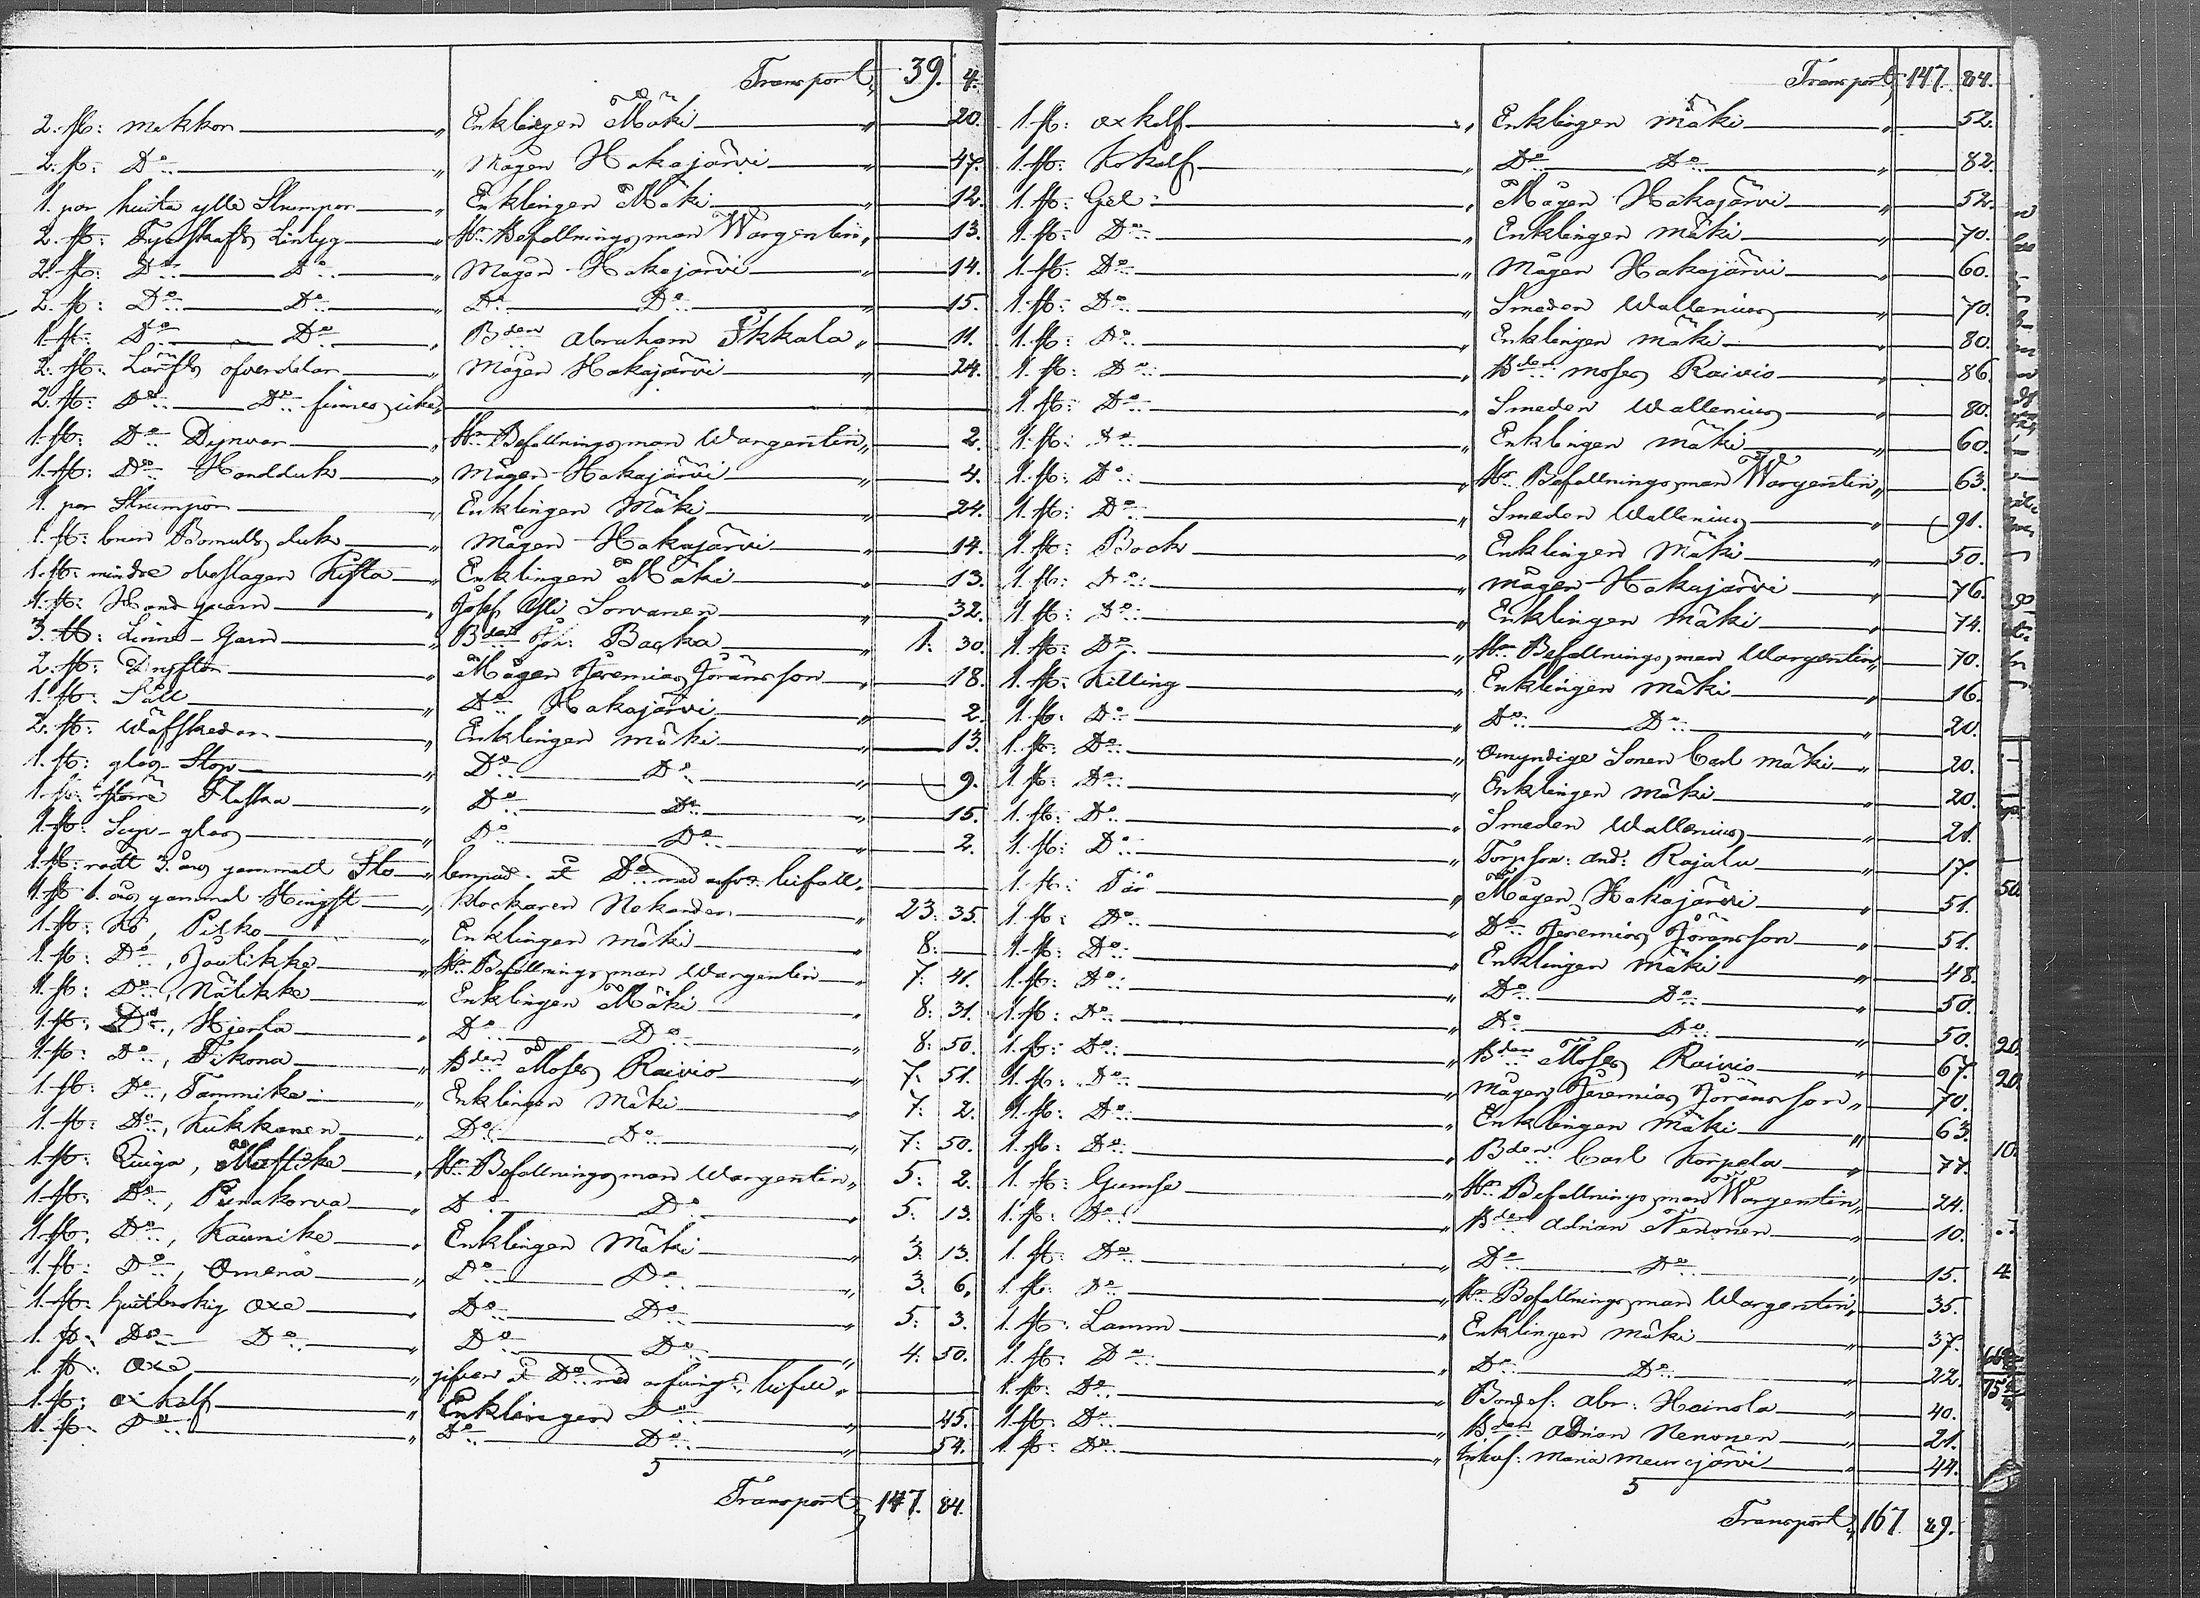 Transport, 39. 4.
2. st: mekkor " Enklingen Mäki " 20.
2. st: Do " Mågen Hakajärvi " 47.
1. par huita ylle Strumpor " Enklingen Mäki " 12.
2. st: Linlyg " Hr Befallningsman Wargentin " 13.
2. st: Do Do " Mågen Hakajärvi " 14.
2. st: Do Do " Do Do " 15.
1. st: Do Do " Bden Abraham Ikkala " 11.
2. st: Lärfts öfverdelar " Mågen Hakajärvi " 24.
2. st: Do Do finnes icke "
1. st: Do Dynvar " Hr Befallningsman Wargentin " 2.
1. st: Do Handduk " Mågen Hakajärvi " 4.
1. par Strumpor " Enklingen Mäki " 24.
1. st: brun Bomulls duk " Mågen Hakajärvi " 14.
1. st: mindre obeslagen Kista " Enklingen Mäki " 13.
1. st: Hand qvarn " Josef Yli Sorvanen " 32.
3. ℔: Linne-Garn " Bden Joh: Backa 1. 30.
2. st: " Mågen Jeremias Jöransson " 18.
1. st: Såll " Do Hakajärvi " 2.
2. st: Wäfskedar " Enklingen Mäki " 13.
1. st: glas Stop " Do Do " 9.
1. st: större Flaska " Do Do " 15.
1. st: Sup-glas " Do Do " 2.
1. st: rödt 3. års gammalt Sto " lemnad åt Do med arfv: bifall "
1. st 1. års gammal Hingst " Klockaren Nekander " 23. 35.
1. st: Ko, Pisko " Enklingen Mäki " 8.
1. st: Do, Joulikke " Hr Befallningsman Wargentin " 7. 41.
1. st: Do, Nätikke " Enklingen Mäki " 8. 31.
1. st: Do, Hjerta " Do Do " 8. 50.
1. st: Do, Tikona " Bden Moses Raivio " 7. 51.
1. st: Do, Tammike " Enklingen Mäki " 7. 2.
1. st: Do, Kukkanen " Do Do " 7. 50.
1. st: Quiga, Mustike " Hr Befallningsman Wargentin " 5. 2.
1. st: Do, Punakorva " Do Do " 5. 13.
1. st: Do, Kaunike " Enklingen Mäki " 3. 13.
1. st: Do, Omena " Do Do " 3. 6.
1. st: hvitbrokig Oxe " Do Do " 5. 3.
1. st: Do Do " Do Do " 4. 50.
1. st: Oxe " gifven åt Do med arfving: bifall "
1. st: oxkalf " Enklingen Do " 45.
1. st: Do " Do Do " 54.
Transport, 147. 84.
Transport, 147. 84.
1. st: oxkalf " Enklingen Mäki " 52.
1. st: Kokalf " Do Do " 82.
1. st: Get: " Mågen Hakajärvi " 52.
1. st: Do " Enklingen Mäki " 70.
1. st: Do " Mågen Hakajärvi " 60.
1. st: Do " Smeden Wallenius " 70.
1. st: Do " Enklingen Mäki " 80.
1. st: Do " Bden Moses Raivio " 86.
1. st: Do " Smeden Wallenius " 80.
1. st: Do " Enklingen Mäki " 60.
1. st: Do " Hr Befallningsman Wargentin " 63.
1. st: Do " Smeden Wallenius " 91.
1. st: Bock " Enklingen Mäki " 50.
1. st: Do " Mågen Hakajärvi " 76.
1. st: Do " Enklingen Mäki " 74.
1. st: Do " Hr Befallningsman Wargentin " 70.
1. st: Killing " Enklingen Mäki " 16.
1. st: Do " Do Do " 20.
1. st: Do " Omyndige Sonen Carl Mäki " 20.
1. st: Do " Enklingen Mäki " 20.
1. st: Do " Smeden Wallenius " 21.
1. st: Do " Torpson: And: Rajala " 17.
1. st: Får " Mågen Hakajärvi " 51.
1. st: Do " Do Jeremias Jöransson " 51.
1. st: Do " Enklingen Mäki " 48.
1. st: Do " Do Do " 50.
1. st: Do " Do Do " 50.
1. st: Do " Bden Moses Raivio " 67.
1. st: Do " Mågen Jeremias Jöransson " 70.
1. st: Do " Enklingen Mäki " 63.
1. st: Do " Bden Carl Korpela " 77.
1. st: Gumse " Hr Befallningsman Wargentin " 24.
1. st: Do " Bden Adrian Nenonen " 10.
1. st: Do " Do Do " 15.
1. st: Do " Hr Befallningsman Wargentin " 35.
1. st: Lamm " Enklingen Mäki " 37.
1. st: Do " Do Do " 22.
1. st: Do " Bondes: Abr: Heinola " 40.
1. st: Do " Bden Adrian Nenonen " 21.
1. st: Do " Enkef: Maria " 44.
Transport, 167. 29.